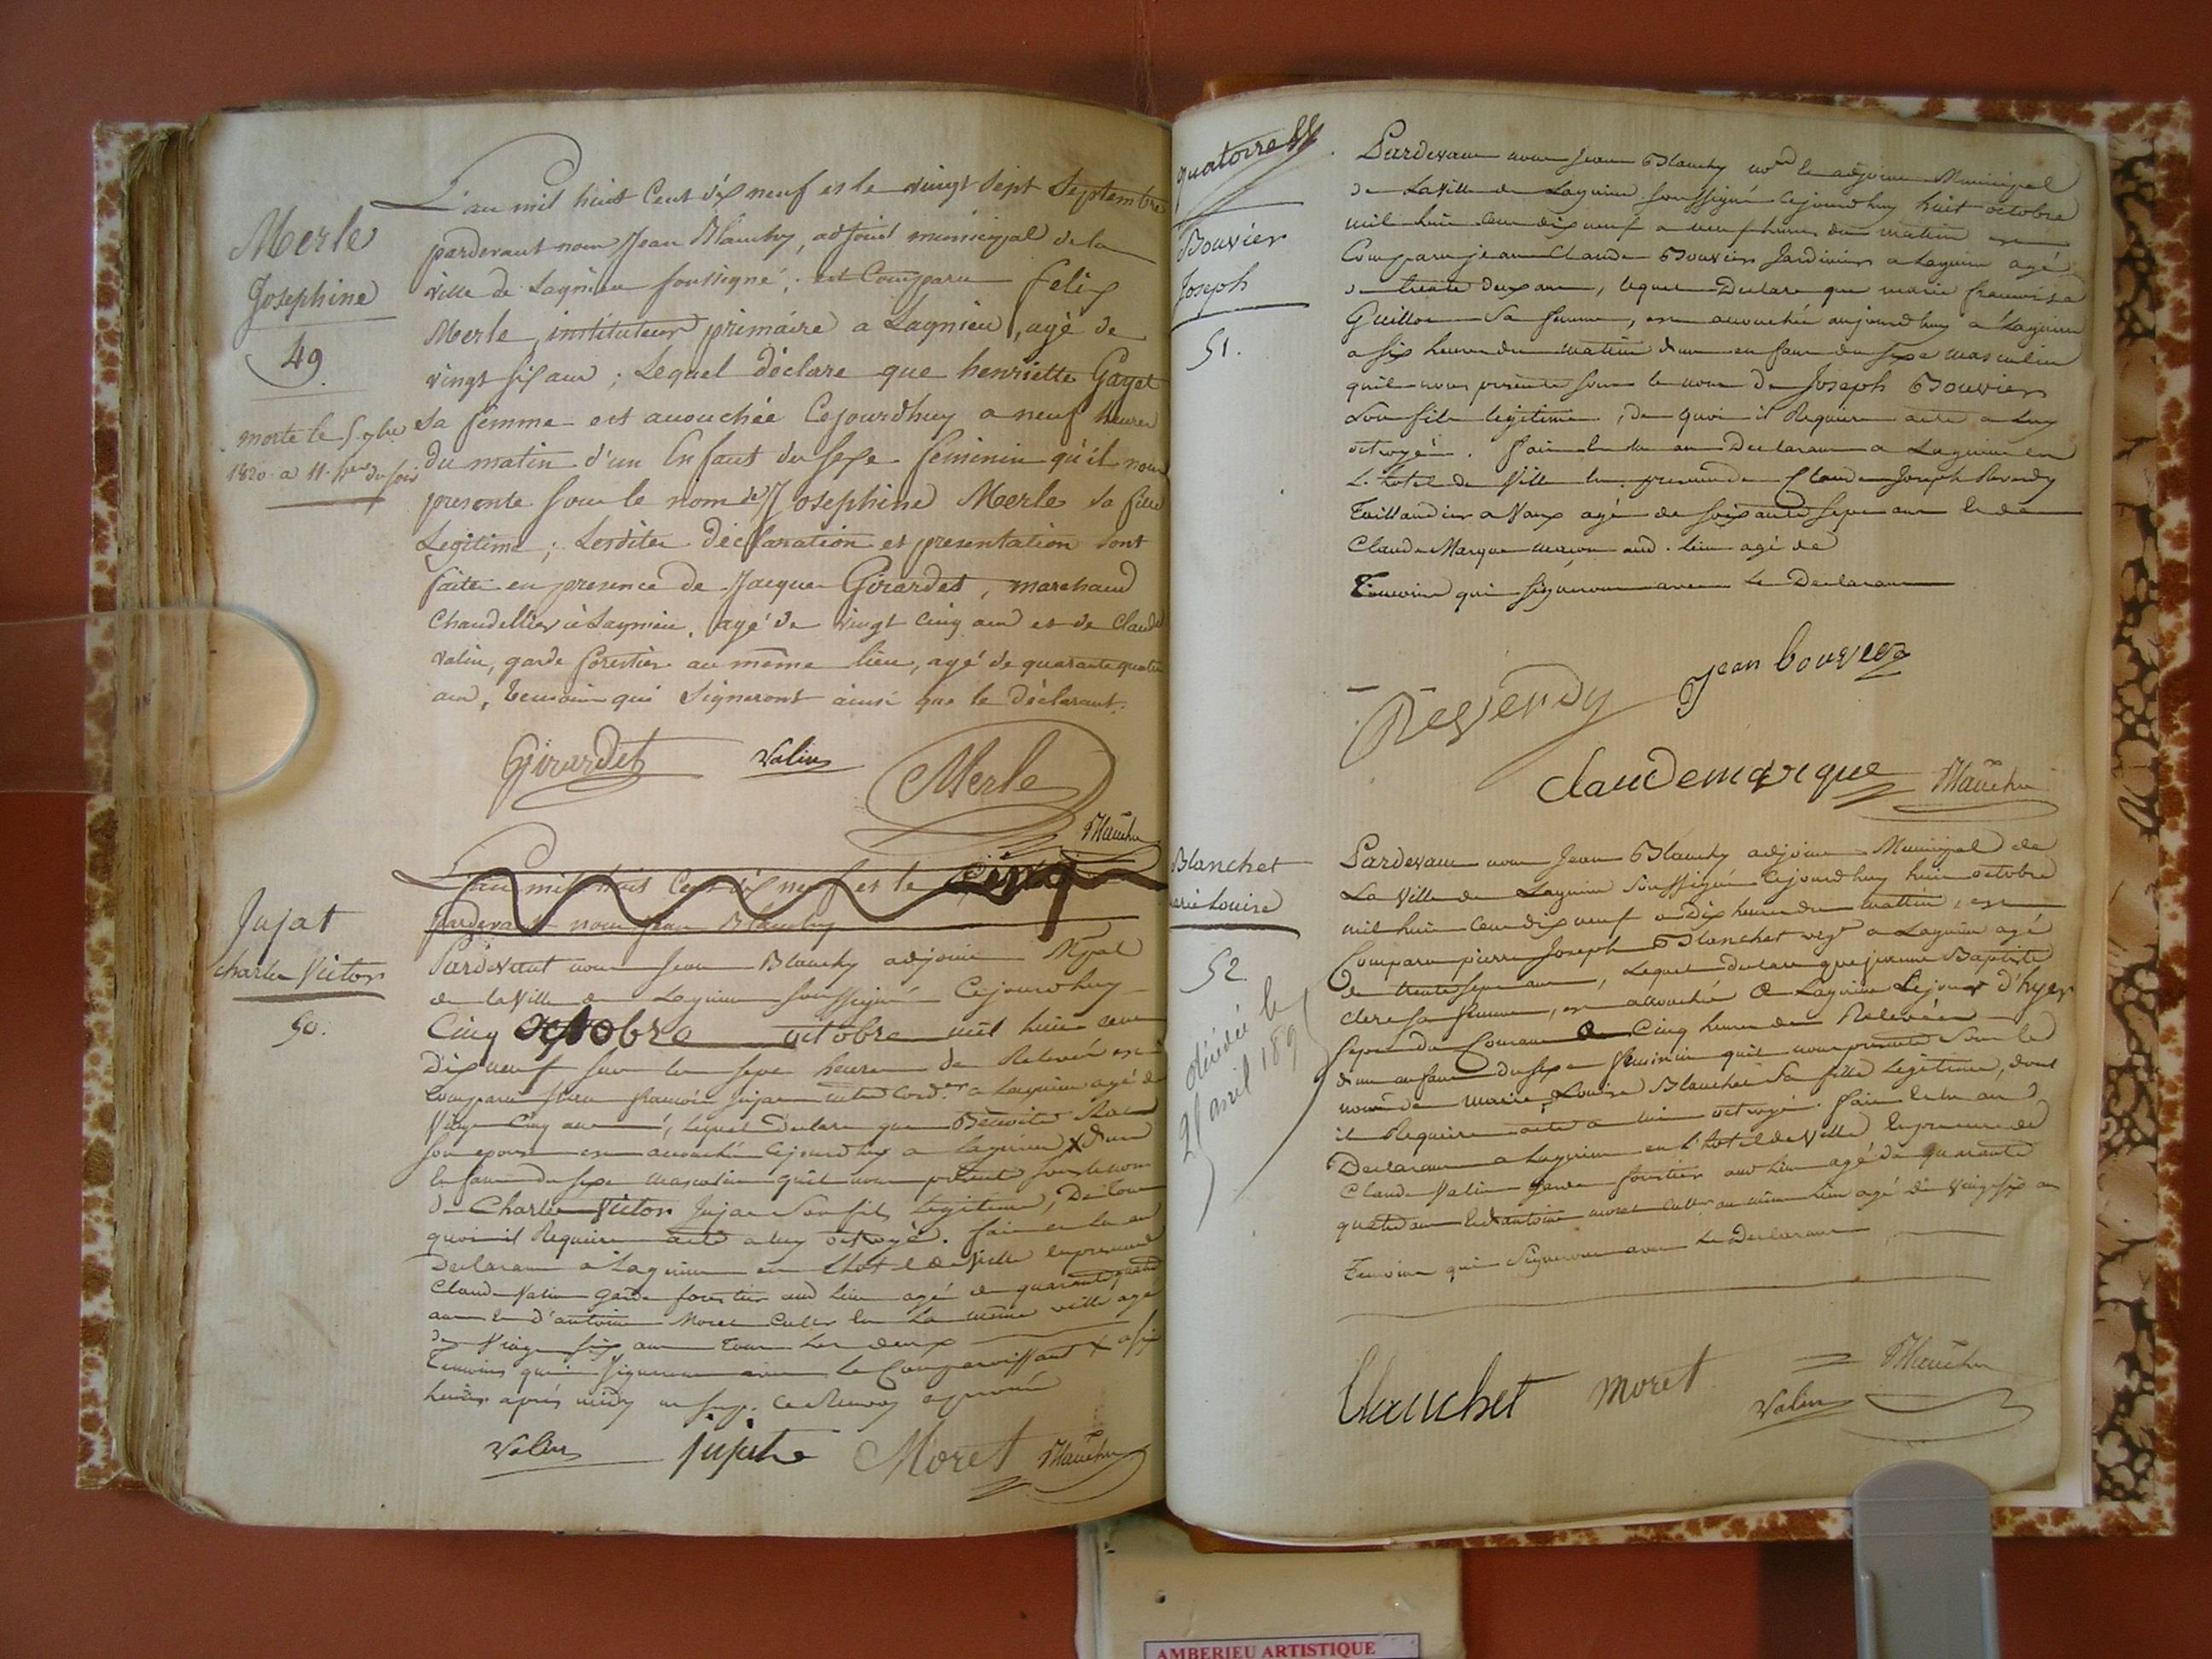 Merle
Josephine
49
morte le 5 7bre
1820 a 11 hres du soir
L'an mil huit Cent dix neuf et le vingt Sept Septembre
pardevant nous Jean Blanchy, adjoint municipal de la
ville de Lagnieu soussigné, est Comparu felix
Merle, instituteur primaire a Lagnieu, agé de
vingt six ans ; Lequel déclare que henriette Gayet
sa femme est accouchée Cejourdhuy a neuf heures
du matin d'un Enfant du sexe feminin qu'il nous
presente sous le nom de Josephine Merle sa fille
Legitime ; Lesdites déclaration et presentation sont
faites en presence de Jacques Girardet, marchand
Chandellier à Lagnieu, agé de vingt cinq ans et de Claude
Valin, garde forestier au même lieu, agé de quarante quatre
ans, temoins qui Signeront ainsi que le déclarant.
Girardet Valin Merle
Jujat
Charles Victor
50.
L'an mil huit Cent dix neuf et le Cinq
pardevant nous Jean Blanchy
Pardevant nous Jean Blanchy adjoint Mpal
de la Ville de Lagnieu soussigné Cejourdhuy
Cinq octobre octobre mil huit cent
Dix neuf sur les sept heures de Relevée est
Comparu francois Jujat a Lagnieu agé de
Vingt Cinq ans, lequel Declare que Benoite
son epouse est accouchée Cejourdhuy a Lagnieu X d'un
Enfant du sexe masculin quil nous présente sous le nom
de Charles Victor Jujat Son fils Legitime, De tout
quoi il Requiere acte a luy octroyé. fait et lu au
Declarant a Lagnieu en L'hotel de Ville en presence
Claude Valin garde forestier aud lieu agé de quarante quatre
ans et d'antoine Moret Cultr en La même ville agé
de Vingt six ans Tous Les deux
Temoins qui Signeront avec le Comparoissant X a six
heures aprés midy Ce Renvoy aprouvé
Valin jujat Moret
quatorze
Bouvier
Joseph
51.
Pardevant nous Jean Blanchy adjoint Municipal
de La Ville de Lagnieu soussigné Cejourdhuy huit octobre
mil huit Cent dix neuf a neuf heures du matin est
Comparu jean Claude Bouvier Jardinier a Lagnieu agé
de trente deux ans, lequel Declare que marie francoise
Guillot Sa femme, est accouchée aujourdhuy a Lagnieu
a six heures du matin d'un enfant du sexe masculin
quil nous présente sous le nom de Joseph Bouvier
Son fils legitime, de quoi il Requiere acte a luy
octroyée. fait et lu au Declarant a Lagnieu en
L'hotel de Ville en presence de Claude Joseph Reverdy
Taillandier a Vaux agé de soixante sept ans et de
Claude Marque aud. lieu agé de
Temoins qui signeront avec Le Declarant
Reverdy jean bouvier
Claudemarque
Blanchet
arie Louise
52
décédée le
21 avril 189
Pardevant nous Jean Blanchy adjoint Municipal de
La Ville de Lagnieu Soussigné Cejourdhuy huit octobre
mil huit Cent dix neuf a Dix heures du mattin, est
Comparu pierre Joseph Blanchet a Lagnieu agé
de trente sept ans, Lequel declare que jeanne Baptiste
clere sa femme, est accouchée a Lagnieu Le jour d'hyer
sept du Courant a Cinq heures de Relevée
d'un enfant du sexe feminin quil nous presente Sous le
nom de marie Louise Blanchet Sa fille Legitime, dont
il Requiere acte a lui octroyé. fait et lu au
Declarant a Lagnieu en L'hotel de Ville en presence de
Claude Valin garde forestier aud lieu agé de quarante
quatre ans et d'antoine moret Cultr au même lieu agé de Vingt six ans
Temoins qui Signeront avec Le Declarant
blanchet moret Valin
AMBERIEU ARTISTIQUE